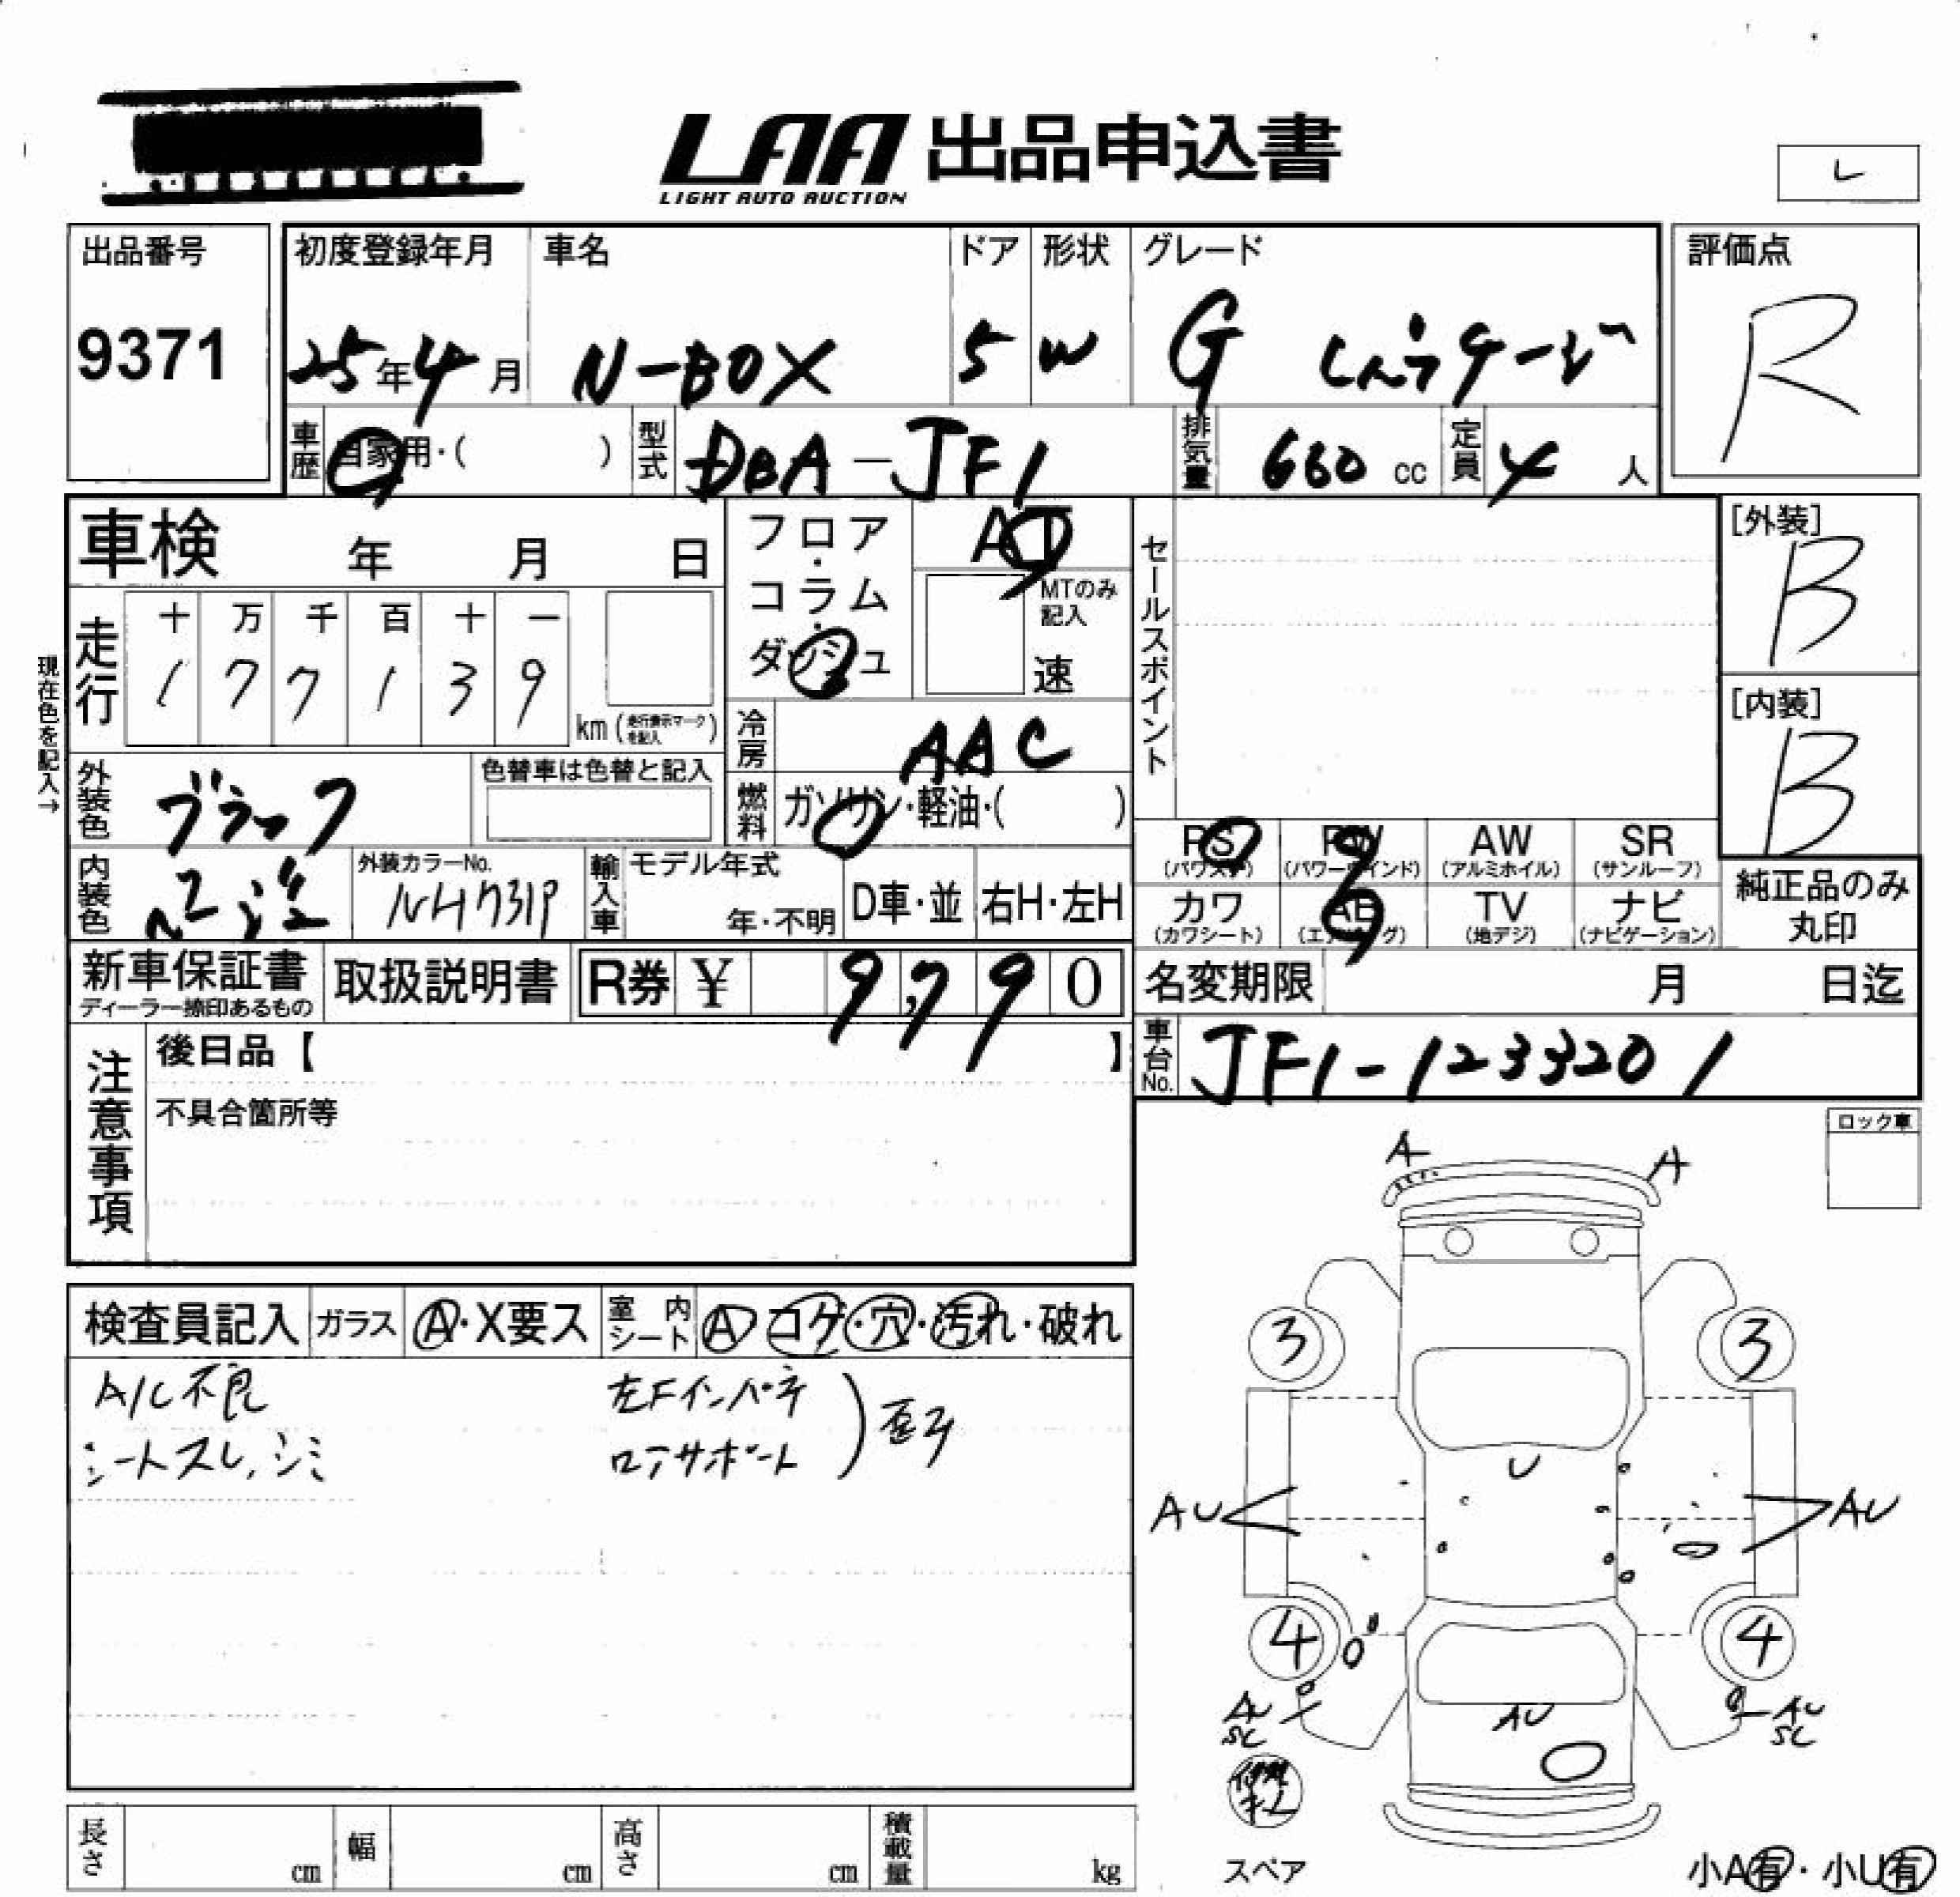 LAA 出品申込書
LIGHT AUTO AUCTION
レ
出品番号
9371
初度登録年月
25年4月
車名
N-BOX
ドア
5
形状
W
グレード
G Lパッケージ
評価点
R
車歴
自家用・( )
型式
DBA-JF1
排気量
660 cc
定員
4 人
車検 年 月 日
フロア・コラム・ダッシュ
AT
MTのみ記入
速
セールスポイント
[外装]
B
[内装]
B
現在色を記入→
走行
十 万 千 百 十 一
1 7 7 1 3 9
km (走行表示マークを記入)
冷房
AAC
外装色
ブラック
色替車は色替と記入
燃料
ガソリン・軽油・( )
内装色
外装カラーNo.
NH731P
輸入車
モデル年式
年・不明
D車・並
右H・左H
PS
(パワステ)
PW
(パワーウインド)
AW
(アルミホイル)
SR
(サンルーフ)
カワ
(カワシート)
AB
(エアバッグ)
TV
(地デジ)
ナビ
(ナビゲーション)
純正品のみ
丸印
新車保証書
ディーラー捺印あるもの
取扱説明書
R券 ¥ 9,790
名変期限 月 日迄
注意事項
後日品【 】
不具合箇所等
車台No.
JF1-1233201
ロック車
検査員記入
ガラス
A・X要ス
室内シート
A コゲ・穴・汚れ・破れ
A/C不良
シートスレ、シミ
左Fインパネ
ロアサポート
) 歪み
A A
3 3
U
AU AU
4 4
AU
SC
AU
AU
SC
修理キット
スペア
小A有・小U有
長さ cm
幅 cm
高さ cm
積載量 kg